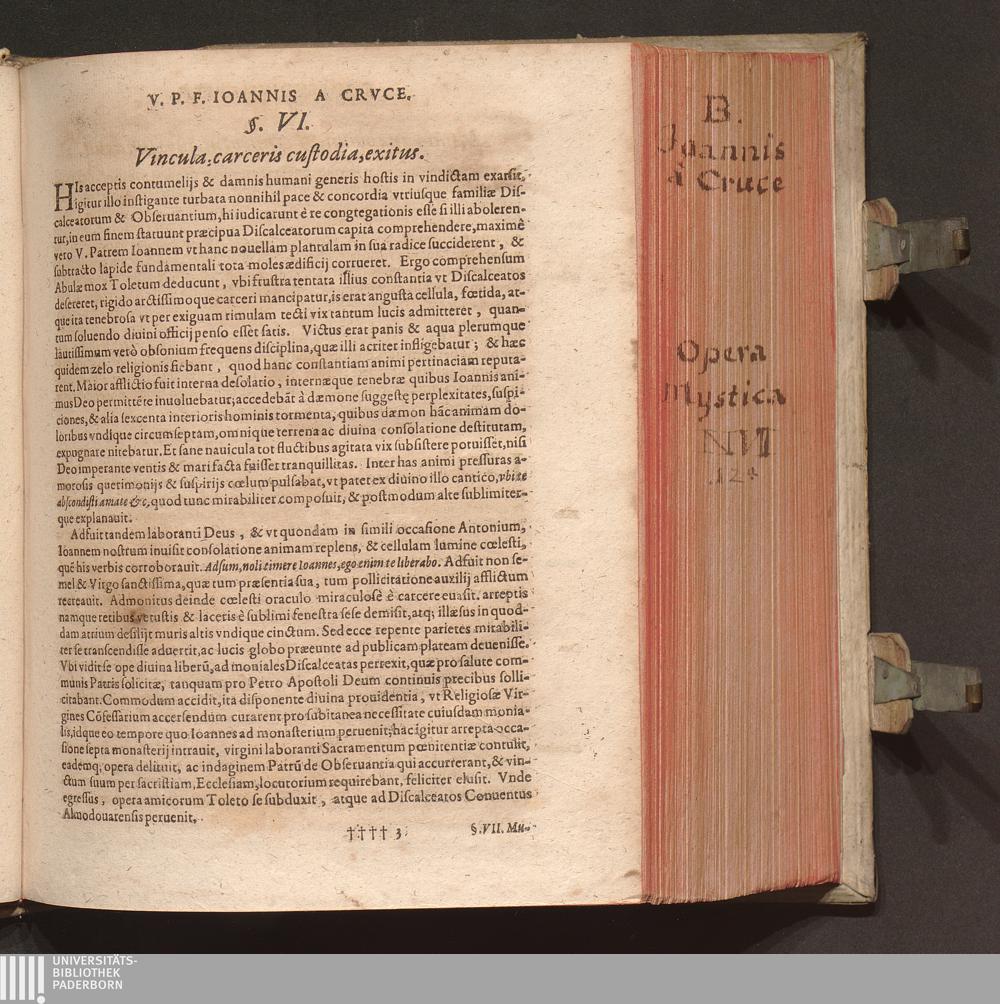 V. P. F. IOANNIS A CRVCE.
§. VI.
Vincula, carceris custodia, exitus.
HIs acceptis contumelijs & damnis humani generis hostis in vindictam exarsit,
igitur illo instigante turbata nonnihil pace & concordia vtriusque familiæ Dis-
calceatorum & Obseruantium, hi iudicarunt è re congregationis esse si illi aboleren-
tur, in eum finem statuunt præcipua Discalceatorum capita comprehendere, maximè
vero V. Patrem Ioannem vt hanc nouellam plantulam in sua radice succiderent, &
subtracto lapide fundamentali tota moles ædificij corrueret. Ergo comprehensum
Abulæ mox Toletum deducunt, vbi frustra tentata illius constantia vt Discalceatos
desereret, rigido arctissimoque carceri mancipatur, is erat angusta cellula, fœtida, at-
que ita tenebrosa vt per exiguam rimulam tecti vix tantum lucis admitteret, quan-
tum soluendo diuini officij penso esset satis. Victus erat panis & aqua plerumque
lautissimum verò obsonium frequens disciplina, quæ illi acriter infligebatur; & hæc
quidem zelo religionis fiebant, quod hanc constantiam animi pertinaciam reputa-
rent. Maior afflictio fuit interna desolatio, internæque tenebræ quibus Ioannis ani-
mus Deo permittēte inuoluebatur; accedebāt à dæmone suggestę perplexitates, suspi-
ciones, & alia sexcenta interioris hominis tormenta, quibus dæmon hāc animam do-
loribus vndique circumseptam, omnique terrena ac diuina consolatione destitutam,
expugnare nitebatur. Et sane nauicula tot fluctibus agitata vix subsistere potuisset, nisi
Deo imperante ventis & mari facta fuisset tranquillitas. Inter has animi pressuras a-
morosis querimonijs & suspirijs cœlum pulsabat, vt patet ex diuino illo cantico, vbi te
abscondisti amate &c, quod tunc mirabiliter composuit, & postmodum alte sublimiter-
que explanauit.
Adfuit tandem laboranti Deus, & vt quondam in simili occasione Antonium,
Ioannem nostrum inuisit consolatione animam replens, & cellulam lumine cœlesti,
quē his verbis corroborauit. Adsum, noli timere Ioannes, ego enim te liberabo. Adfuit non se-
mel & Virgo sanctissima, quæ tum præsentia sua, tum pollicitatione auxilij afflictum
recreauit. Admonitus deinde cœlesti oraculo miraculosè è carcere euasit. arreptis
namque retibus vetustis & laceris è sublimi fenestra sese demisit, atq; illæsus in quod-
dam atrium desilijt muris altis vndique cinctum. Sed ecce repente parietes mirabili-
ter se transcendisse aduertit, ac lucis globo præeunte ad publicam plateam deuenisse.
Vbi vidit se ope diuina liberū, ad moniales Discalceatas perrexit, quæ pro salute com-
munis Patris solicitæ, tanquam pro Petro Apostoli Deum continuis precibus solli-
citabant. Commodum accidit, ita disponente diuina prouidentia, vt Religiosæ Vir-
gines Cōfessarium accersendum curarent pro subitanea necessitate cuiusdam monia-
lis, idque eo tempore quo Ioannes ad monasterium peruenit; hac igitur arrepta occa-
sione septa monasterij intrauit, virgini laboranti Sacramentum pœnitentiæ contulit,
eademq; opera delituit, ac indaginem Patrū de Obseruantia qui accurrerant, & vin-
ctum suum per sacristiam, Ecclesiam, locutorium requirebant, feliciter elusit. Vnde
egressus, opera amicorum Toleto se subduxit, atque ad Discalceatos Conuentus
Almodouarensis peruenit.
†††† 3
§. VII. Mu-
B.
Joannis
à Cruce
Opera
Mystica
12
UNIVERSITÄTS-
BIBLIOTHEK
PADERBORN